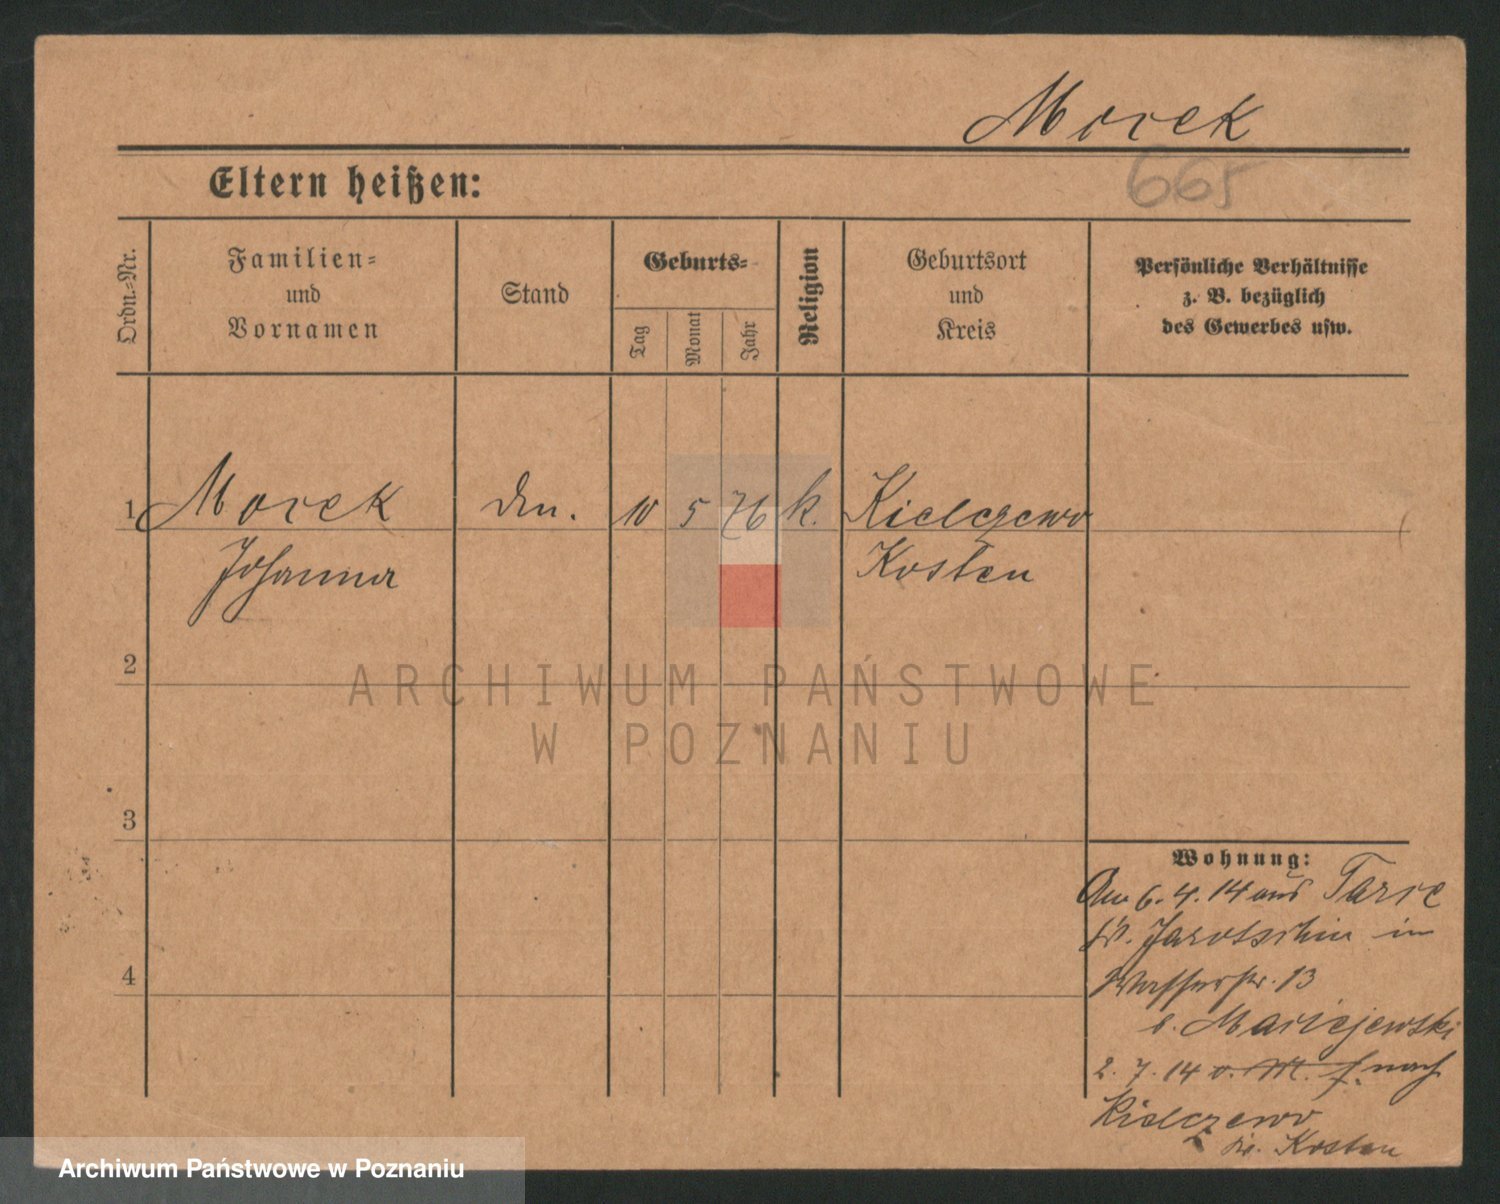 Morek
665
Eltern heißen:
Ordn.-Nr.
Familien-
und
Vornamen
Stand
Geburts-
Tag
Monat
Jahr
Religion
Geburtsort
und
Kreis
Persönliche Verhältnisse
z. B. bezüglich
des Gewerbes usw.
1 Morek 10 5 76 k. Kielczewo
Johanna Kosten
2
ARCHIWUM PAŃSTWOWE
W POZNANIU
3
Wohnung:
Am 6.4.14 aus Tarce
Kr. Jarotschin in
Wasserstr. 13
b. Maciejewski
2.7.14 v. M. f. nach
Kielczewo
Kr. Kosten
4
Archiwum Państwowe w Poznaniu